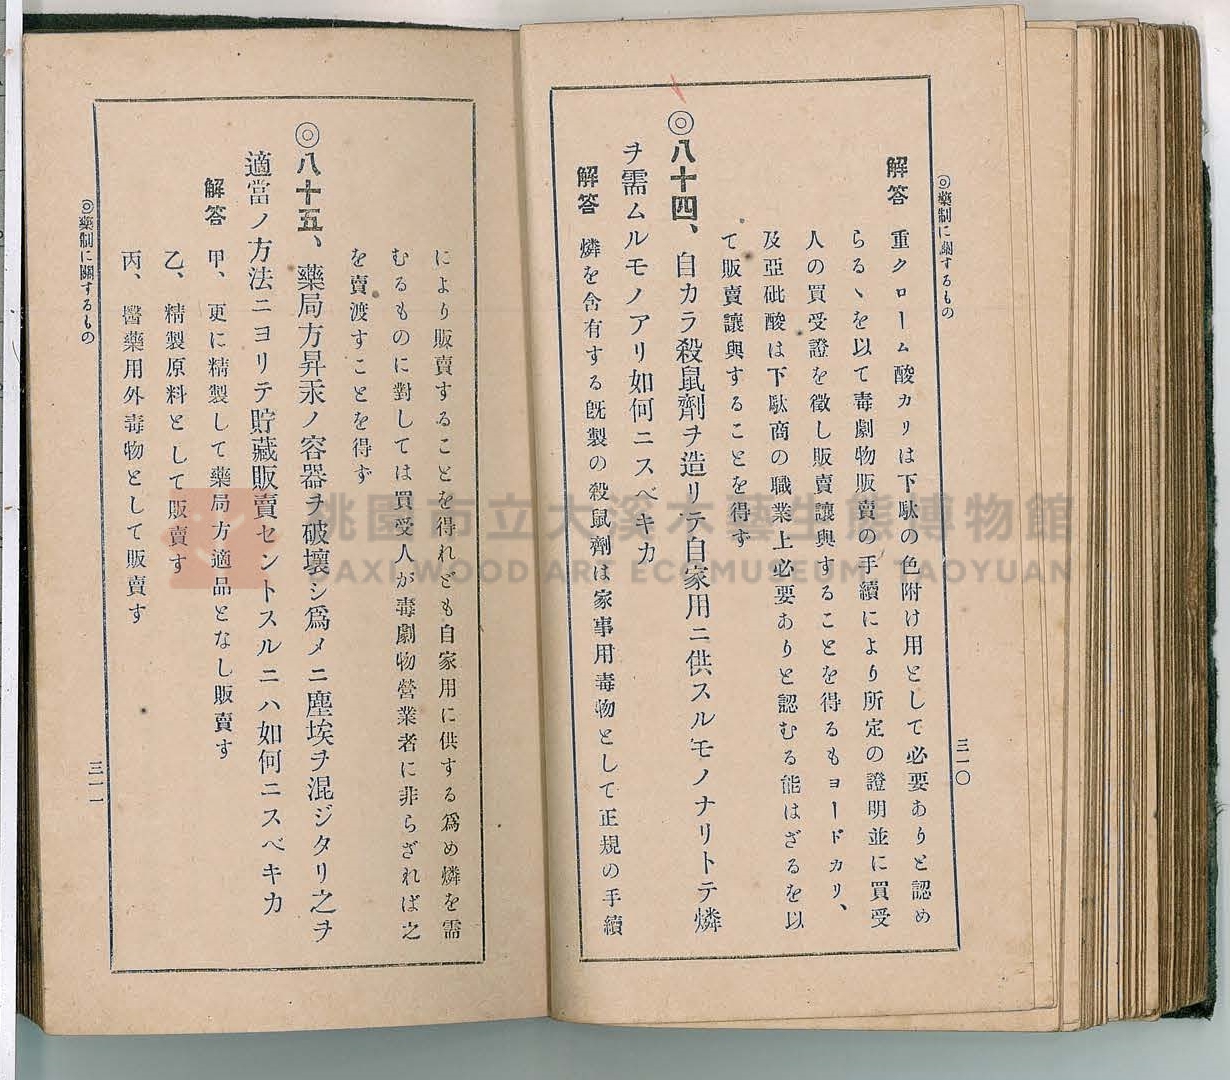 ◎藥制に關するもの
三一〇
解答 重クローム酸カリは下駄の色附け用として必要ありと認め
らるゝを以て毒劇物販賣の手續により所定の證明並に買受
人の買受證を徵し販賣讓與することを得るもヨードカリ、
及亞砒酸は下駄商の職業上必要ありと認むる能はざるを以
て販賣讓與することを得ず
◎八十四、自カラ殺鼠劑ヲ造リテ自家用ニ供スルモノナリトテ燐
ヲ需ムルモノアリ如何ニスベキカ
解答 燐を含有する旣製の殺鼠劑は家事用毒物として正規の手續
により販賣することを得れども自家用に供する爲め燐を需
むるものに對しては買受人が毒劇物營業者に非らざれば之
を賣渡すことを得ず
◎八十五、藥局方昇汞ノ容器ヲ破壞シ爲メニ塵埃ヲ混ジタリ之ヲ
適當ノ方法ニヨリテ貯藏販賣セントスルニハ如何ニスベキカ
解答 甲、更に精製して藥局方適品となし販賣す
乙、精製原料として販賣す
丙、醫藥用外毒物として販賣す
◎藥制に關するもの
三一一
桃園市立大溪木藝生態博物館
DAXI WOOD ART ECOMUSEUM TAOYUAN